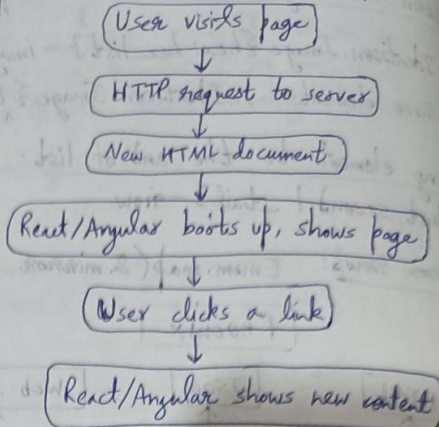 User visits page
HTTP request to server
New HTML document
React/Angular boots up, shows page
User clicks a link
React/Angular shows new content